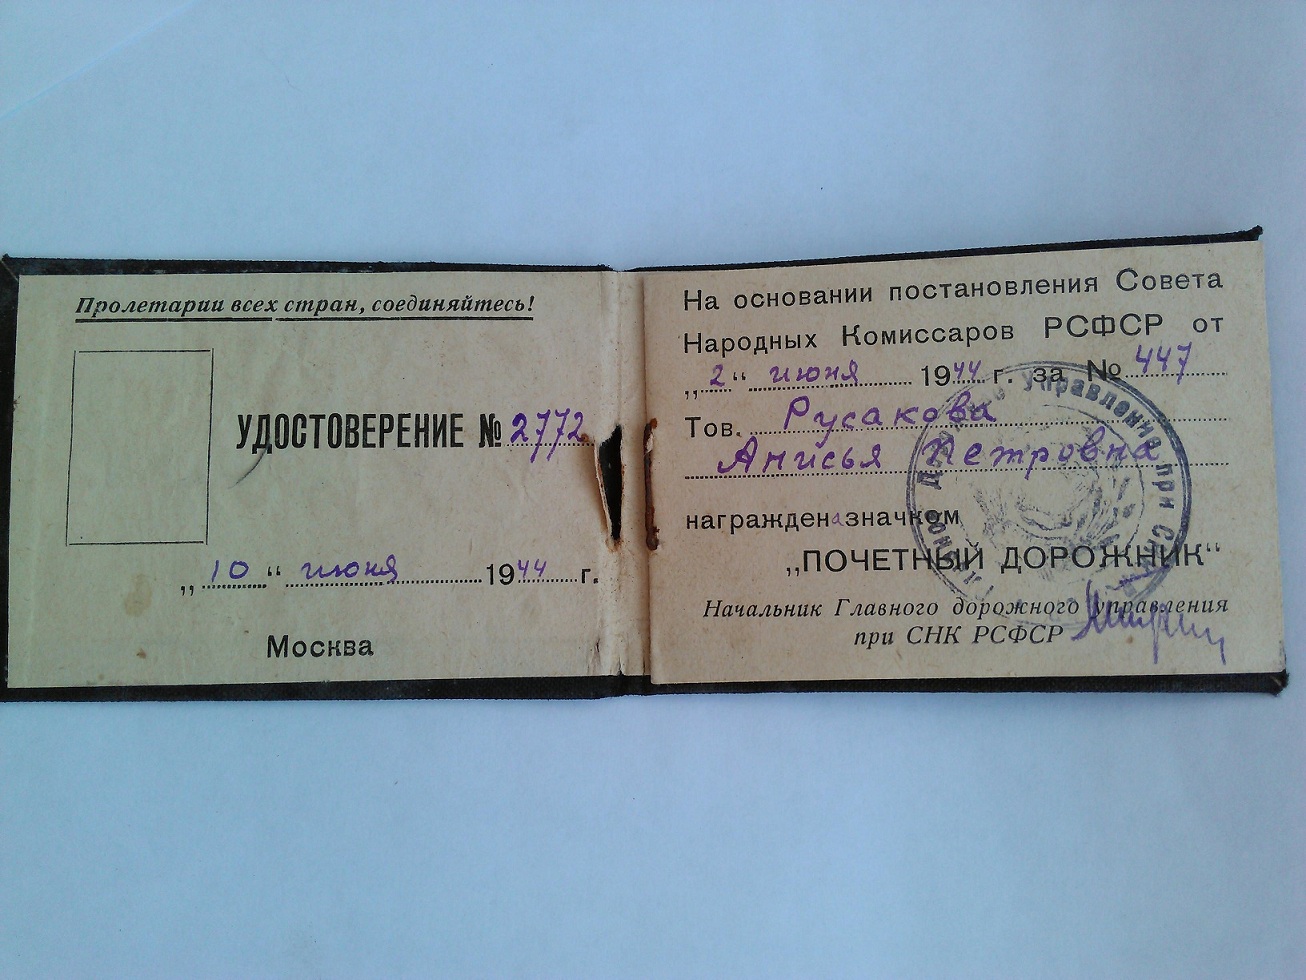 Пролетарии всех стран, соединяйтесь!
УДОСТОВЕРЕНИЕ № 2772
„10“ июня 1944 г.
Москва
На основании постановления Совета
Народных Комиссаров РСФСР от
„2“ июня 1944 г. за № 447
Тов. Русакова
Анисья Петровна
награждена значком
„ПОЧЕТНЫЙ ДОРОЖНИК“
Начальник Главного дорожного управления
при СНК РСФСР
Управление при